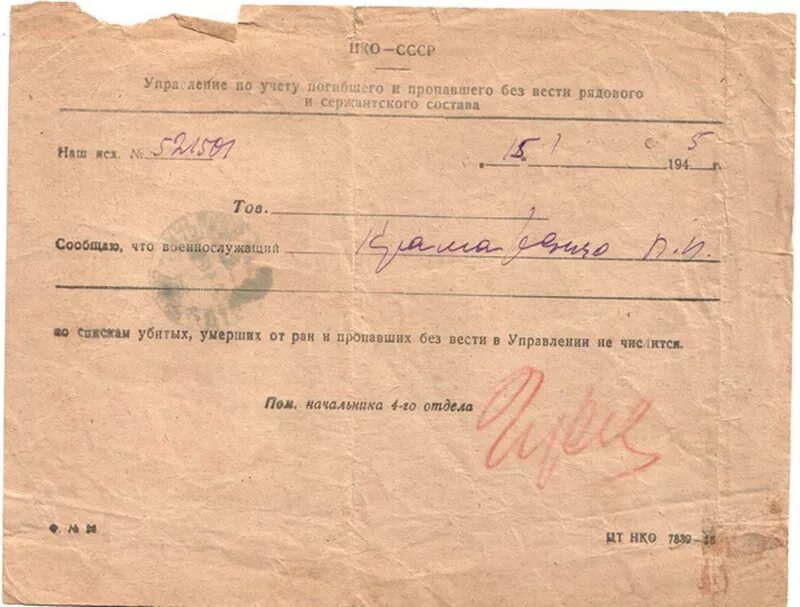 НКО—СССР
Управление по учету погибшего и пропавшего без вести рядового
и сержантского состава
Наш исх. № 521501 „15“ 1 1945 г.
Тов.
Сообщаю, что военнослужащий П.И.
по спискам убитых, умерших от ран и пропавших без вести в Управлении не числится.
Пом. начальника 4-го отдела
Ф. № 20
ЦТ НКО 7839—